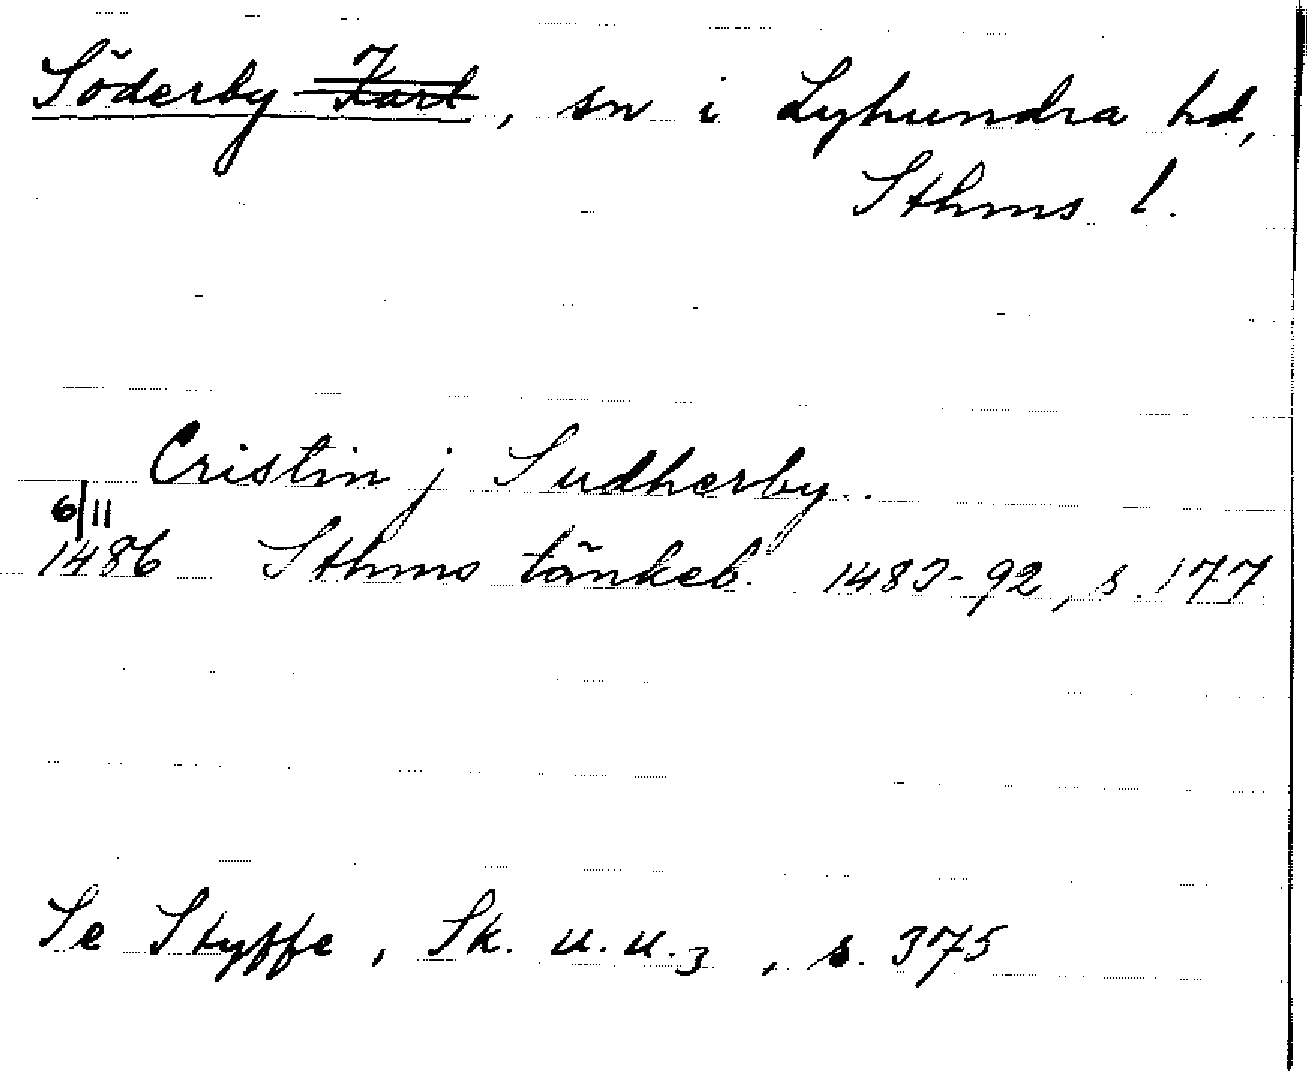 Söderby Karl, sn i Lyhundra hd,
Sthms l.
Cristin j Sudherby.
6/11
1486 Sthms tänkeb. 1483-92, s. 177
Se Styffe, Sk. u. u. 3, s. 375